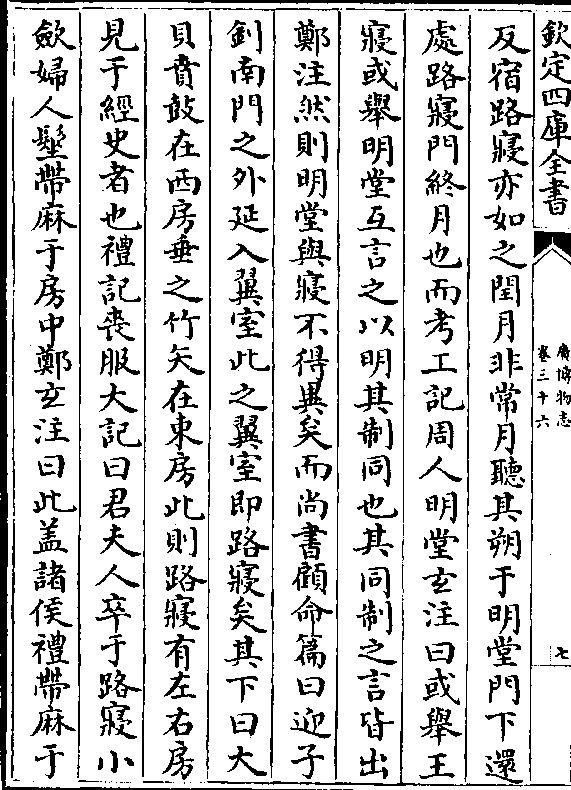 欽定四庫全書
廣博物志
卷三十六
七
反宿路寢亦如之閏月非常月聽其朔于明堂門下還
處路寢門終月也而考工記周人明堂玄注曰或舉王
寢或舉明堂互言之以明其制同也其同制之言皆出
鄭注然則明堂與寢不得異矣而尚書顧命篇曰迎子
釗南門之外延入翼室此之翼室即路寢矣其下曰大
貝賁鼓在西房垂之竹矢在東房此則路寢有左右房
見于經史者也禮記喪服大記曰君夫人卒于路寢小
斂婦人髽帶麻于房中鄭玄注曰此盖諸侯禮帶麻于